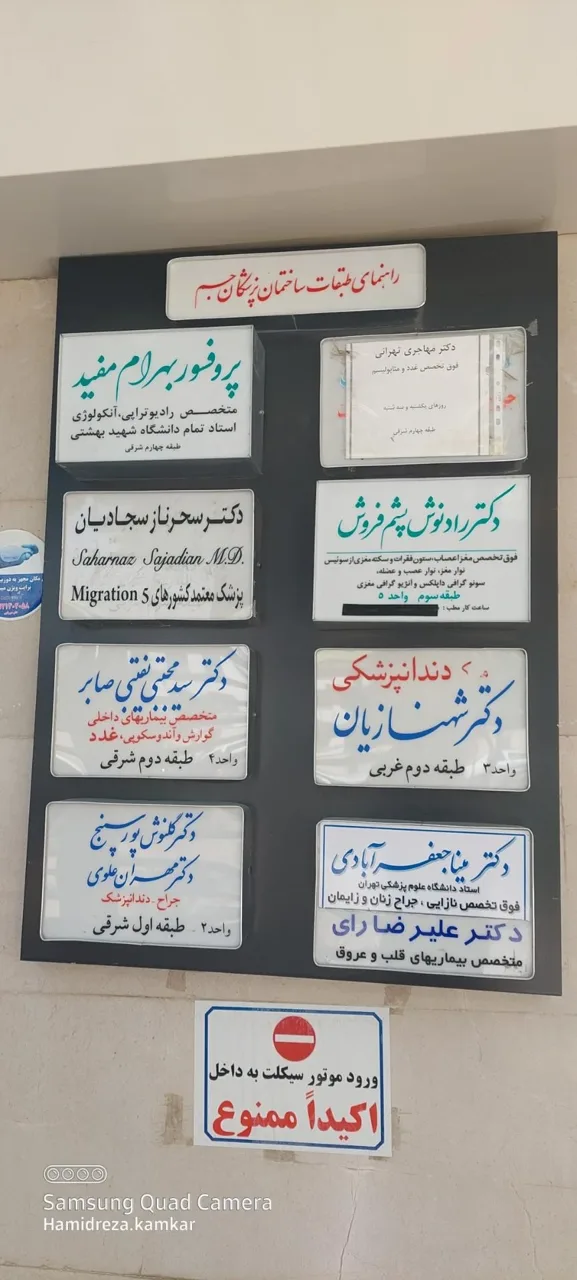 راهنمای طبقات ساختمان پزشکان جم
پروفسور بهرام مفید
متخصص رادیوتراپی، آنکولوژی
استاد تمام دانشگاه شهید بهشتی
طبقه چهارم شرقی
دکتر مهاجری تهرانی
فوق تخصص غدد و متابولیسم
روزهای یکشنبه و سه شنبه
طبقه چهارم شرقی
دکتر سحرناز سجادیان
Saharnaz Sajadian M.D.
پزشک معتمد کشورهای 5 Migration
دکتر رادنوش پشم فروش
فوق تخصص مغز اعصاب، ستون فقرات و سکته مغزی از سوئیس
نوار مغز، نوار عصب و عضله،
سونو گرافی داپلکس و آنژیو گرافی مغزی
طبقه سوم واحد ۵
ساعت کار مطب:
دکتر سید مجتبی نفتنی صابر
متخصص بیماریهای داخلی
گوارش و آندوسکوپی، غدد
واحد ۴ طبقه دوم شرقی
دندانپزشکی
دکتر شهنازیان
واحد ۳ طبقه دوم غربی
دکتر گلنوش پورسنج
دکتر مهران علوی
جراح - دندانپزشک
واحد ۲ - طبقه اول شرقی
دکتر مینا جعفرآبادی
استاد دانشگاه علوم پزشکی تهران
فوق تخصص نازایی ، جراح زنان و زایمان
دکتر علیرضا رای
متخصص بیماریهای قلب و عروق
ورود موتور سیکلت به داخل
اکیداً ممنوع
Samsung Quad Camera
Hamidreza.kamkar